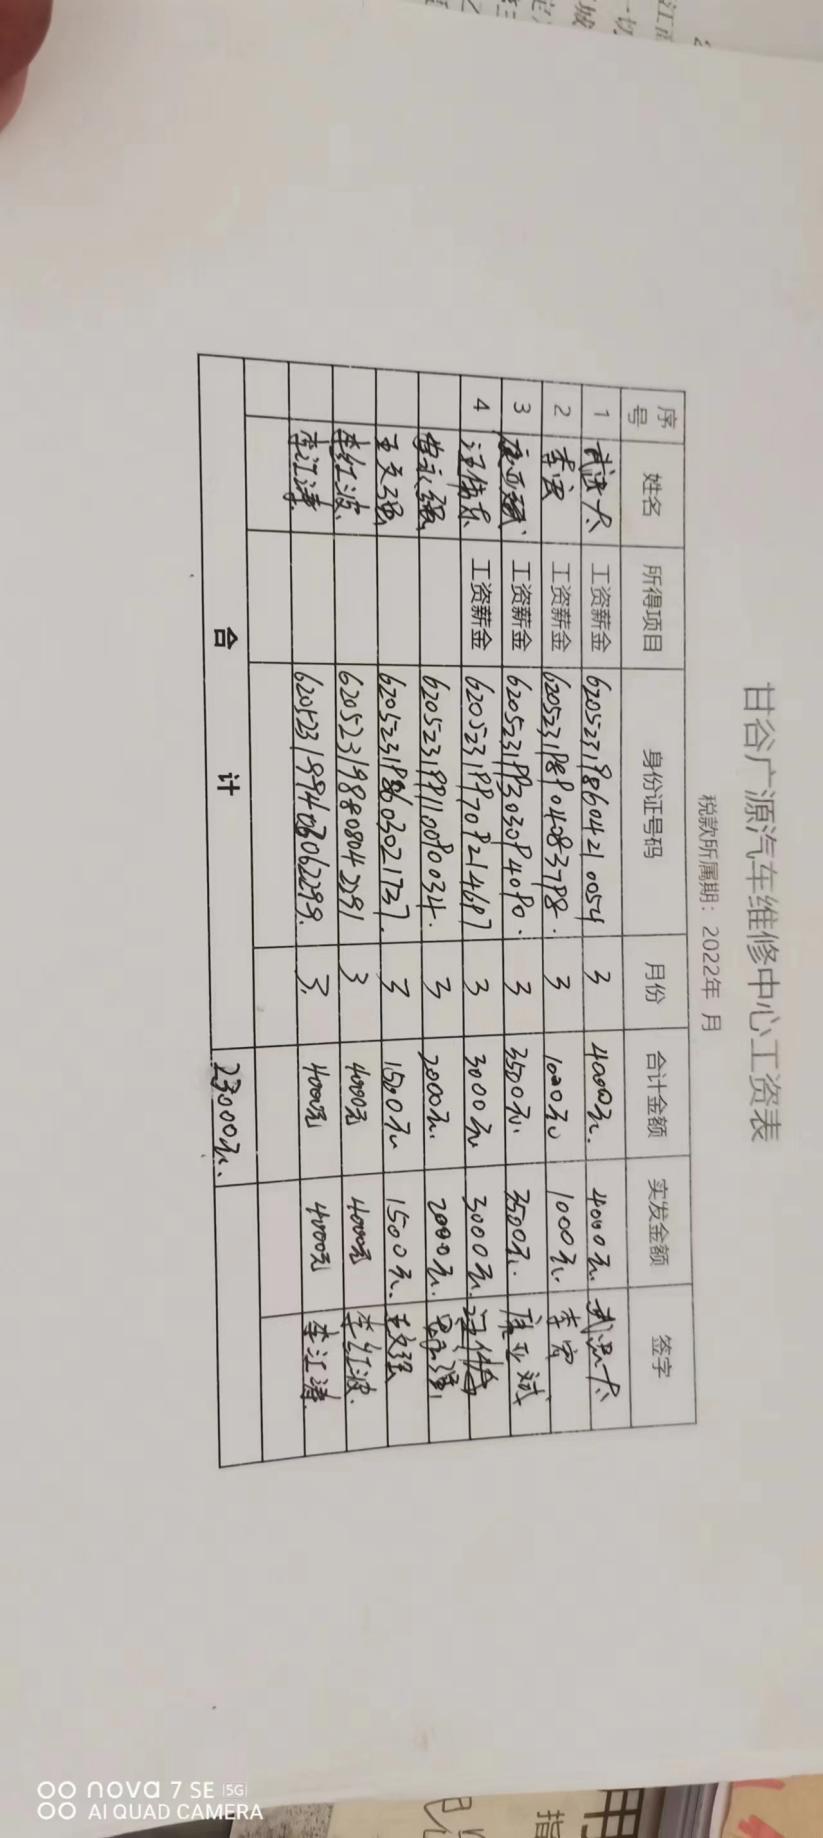 甘谷广源汽车维修中心工资表
税款所属期：2022年 月
序号 姓名 所得项目 身份证号码 月份 合计金额 实发金额 签字
1 工资薪金 620523198604210054 3 4000元. 4000元.
2 李宏 工资薪金 620523198904083798. 3 1000元 1000元. 李宏
3 庞亚斌 工资薪金 620523199303094090. 3 3500元. 3500元. 庞亚斌
4 工资薪金 620523199709214697 3 3000元 3000元.
620523199110090034. 3 2000元. 2000元.
王文强 620523198603021737. 3 1500元 1500元. 王文强
李红波. 620523198808042291 3 4000元 4000元 李红波.
李江涛. 3. 4000元 4000元 李江涛.
合 计 23000元.
nova 7 SE 5G
AI QUAD CAMERA
用
指